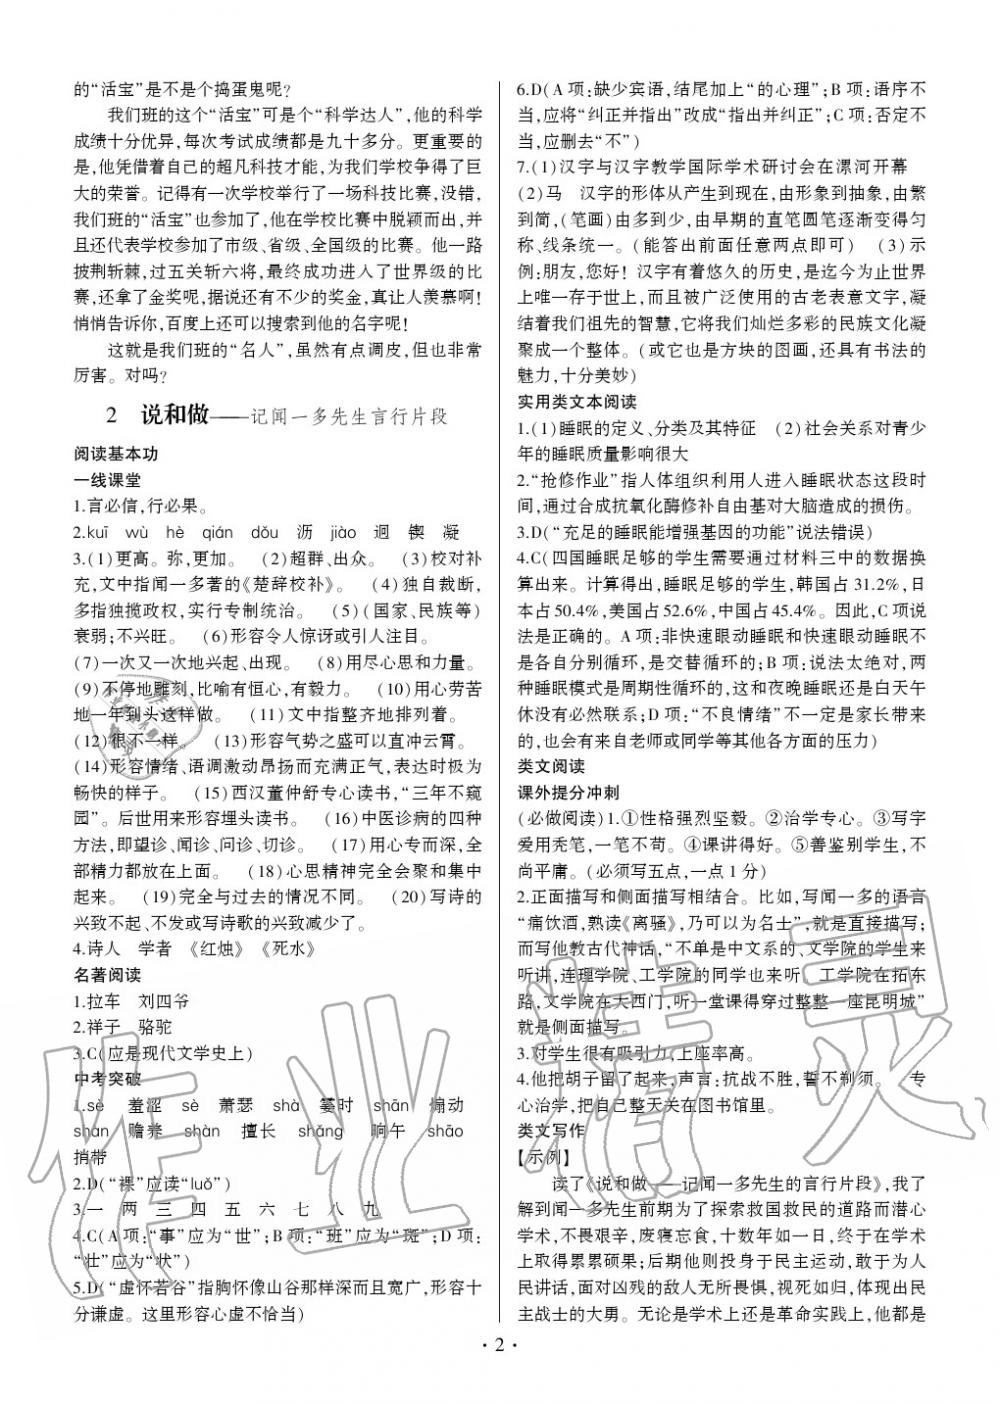 的“活宝”是不是个捣蛋鬼呢?
我们班的这个“活宝”可是个“科学达人”,他的科学
成绩十分优异,每次考试成绩都是九十多分。更重要的
是,他凭借着自己的超凡科技才能,为我们学校争得了巨
大的荣誉。记得有一次学校举行了一场科技比赛,没错,
我们班的“活宝”也参加了,他在学校比赛中脱颖而出,并
且还代表学校参加了市级、省级、全国级的比赛。他一路
披荆斩棘,过五关斩六将,最终成功进入了世界级的比
赛,还拿了金奖呢,据说还有不少的奖金,真让人羡慕啊!
悄悄告诉你,百度上还可以搜索到他的名字呢!
这就是我们班的“名人”,虽然有点调皮,但也非常
厉害。对吗?
2 说和做——记闻一多先生言行片段
阅读基本功
一线课堂
1.言必信,行必果。
2.kuī wù hè qián dǒu 沥 jiào 迥 锲 凝
3.(1)更高。弥,更加。 (2)超群、出众。 (3)校对补
充,文中指闻一多著的《楚辞校补》。 (4)独自裁断,
多指独揽政权,实行专制统治。 (5)(国家、民族等)
衰弱;不兴旺。 (6)形容令人惊讶或引人注目。
(7)一次又一次地兴起、出现。 (8)用尽心思和力量。
(9)不停地雕刻,比喻有恒心,有毅力。 (10)用心劳苦
地一年到头这样做。 (11)文中指整齐地排列着。
(12)很不一样。 (13)形容气势之盛可以直冲云霄。
(14)形容情绪、语调激动昂扬而充满正气,表达时极为
畅快的样子。 (15)西汉董仲舒专心读书,“三年不窥
园”。后世用来形容埋头读书。 (16)中医诊病的四种
方法,即望诊、闻诊、问诊、切诊。 (17)用心专而深,全
部精力都放在上面。 (18)心思精神完全会聚和集中
起来。 (19)完全与过去的情况不同。 (20)写诗的
兴致不起、不发或写诗歌的兴致减少了。
4.诗人 学者 《红烛》 《死水》
名著阅读
1.拉车 刘四爷
2.祥子 骆驼
3.C(应是现代文学史上)
中考突破
1.sè 羞涩 sè 萧瑟 shà 霎时 shān 煽动
shàn 赡养 shàn 擅长 shǎng 晌午 shāo
捎带
2.D(“裸”应读“luǒ”)
3.一 两 三 四 五 六 七 八 九
4.C(A项:“事”应为“世”;B项:“班”应为“斑”;D项:
“壮”应为“状”)
5.D(“虚怀若谷”指胸怀像山谷那样深而且宽广,形容十
分谦虚。这里形容心虚不恰当)
6.D(A项:缺少宾语,结尾加上“的心理”;B项:语序不
当,应将“纠正并指出”改成“指出并纠正”;C项:否定不
当,应删去“不”)
7.(1)汉字与汉字教学国际学术研讨会在漯河开幕
(2)马 汉字的形体从产生到现在,由形象到抽象,由繁
到简,(笔画)由多到少,由早期的直笔圆笔逐渐变得匀
称、线条统一。(能答出前面任意两点即可) (3)示
例:朋友,您好!汉字有着悠久的历史,是迄今为止世界
上唯一存于世上,而且被广泛使用的古老表意文字,凝
结着我们祖先的智慧,它将我们灿烂多彩的民族文化凝
聚成一个整体。(或它也是方块的图画,还具有书法的
魅力,十分美妙)
实用类文本阅读
1.(1)睡眠的定义、分类及其特征 (2)社会关系对青少
年的睡眠质量影响很大
2.“抢修作业”指人体组织利用人进入睡眠状态这段时
间,通过合成抗氧化酶修补自由基对大脑造成的损伤。
3.D(“充足的睡眠能增强基因的功能”说法错误)
4.C(四国睡眠足够的学生需要通过材料三中的数据换
算出来。计算得出,睡眠足够的学生,韩国占31.2%,日
本占50.4%,美国占52.6%,中国占45.4%。因此,C项说
法是正确的。A项:非快速眼动睡眠和快速眼动睡眠不
是各自分别循环,是交替循环的;B项:说法太绝对,两
种睡眠模式是周期性循环的,这和夜晚睡眠还是白天午
休没有必然联系;D项:“不良情绪”不一定是家长带来
的,也会有来自老师或同学等其他各方面的压力)
类文阅读
课外提分冲刺
(必做阅读)1.①性格强烈坚毅。②治学专心。③写字
爱用秃笔,一笔不苟。④课讲得好。⑤善鉴别学生,不
尚平庸。(必须写五点,一点1分)
2.正面描写和侧面描写相结合。比如,写闻一多的语言
“痛饮酒,熟读《离骚》,乃可以为名士”,就是直接描写;
而写他教古代神话,“不单是中文系的、文学院的学生来
听讲,连理学院、工学院的同学也来听。工学院在拓东
路,文学院在大西门,听一堂课得穿过整整一座昆明城”
就是侧面描写。
3.对学生很有吸引力,上座率高。
4.他把胡子留了起来,声言:抗战不胜,誓不剃须。 专
心治学,把自己整天关在图书馆里。
类文写作
【示例】
读了《说和做——记闻一多先生的言行片段》,我了
解到闻一多先生前期为了探索救国救民的道路而潜心
学术,不畏艰辛,废寝忘食,十数年如一日,终于在学术
上取得累累硕果;后期他则投身于民主运动,敢于为人
民讲话,面对凶残的敌人无所畏惧,视死如归,体现出民
主战士的大勇。无论是学术上还是革命实践上,他都是
·2·
作业精灵